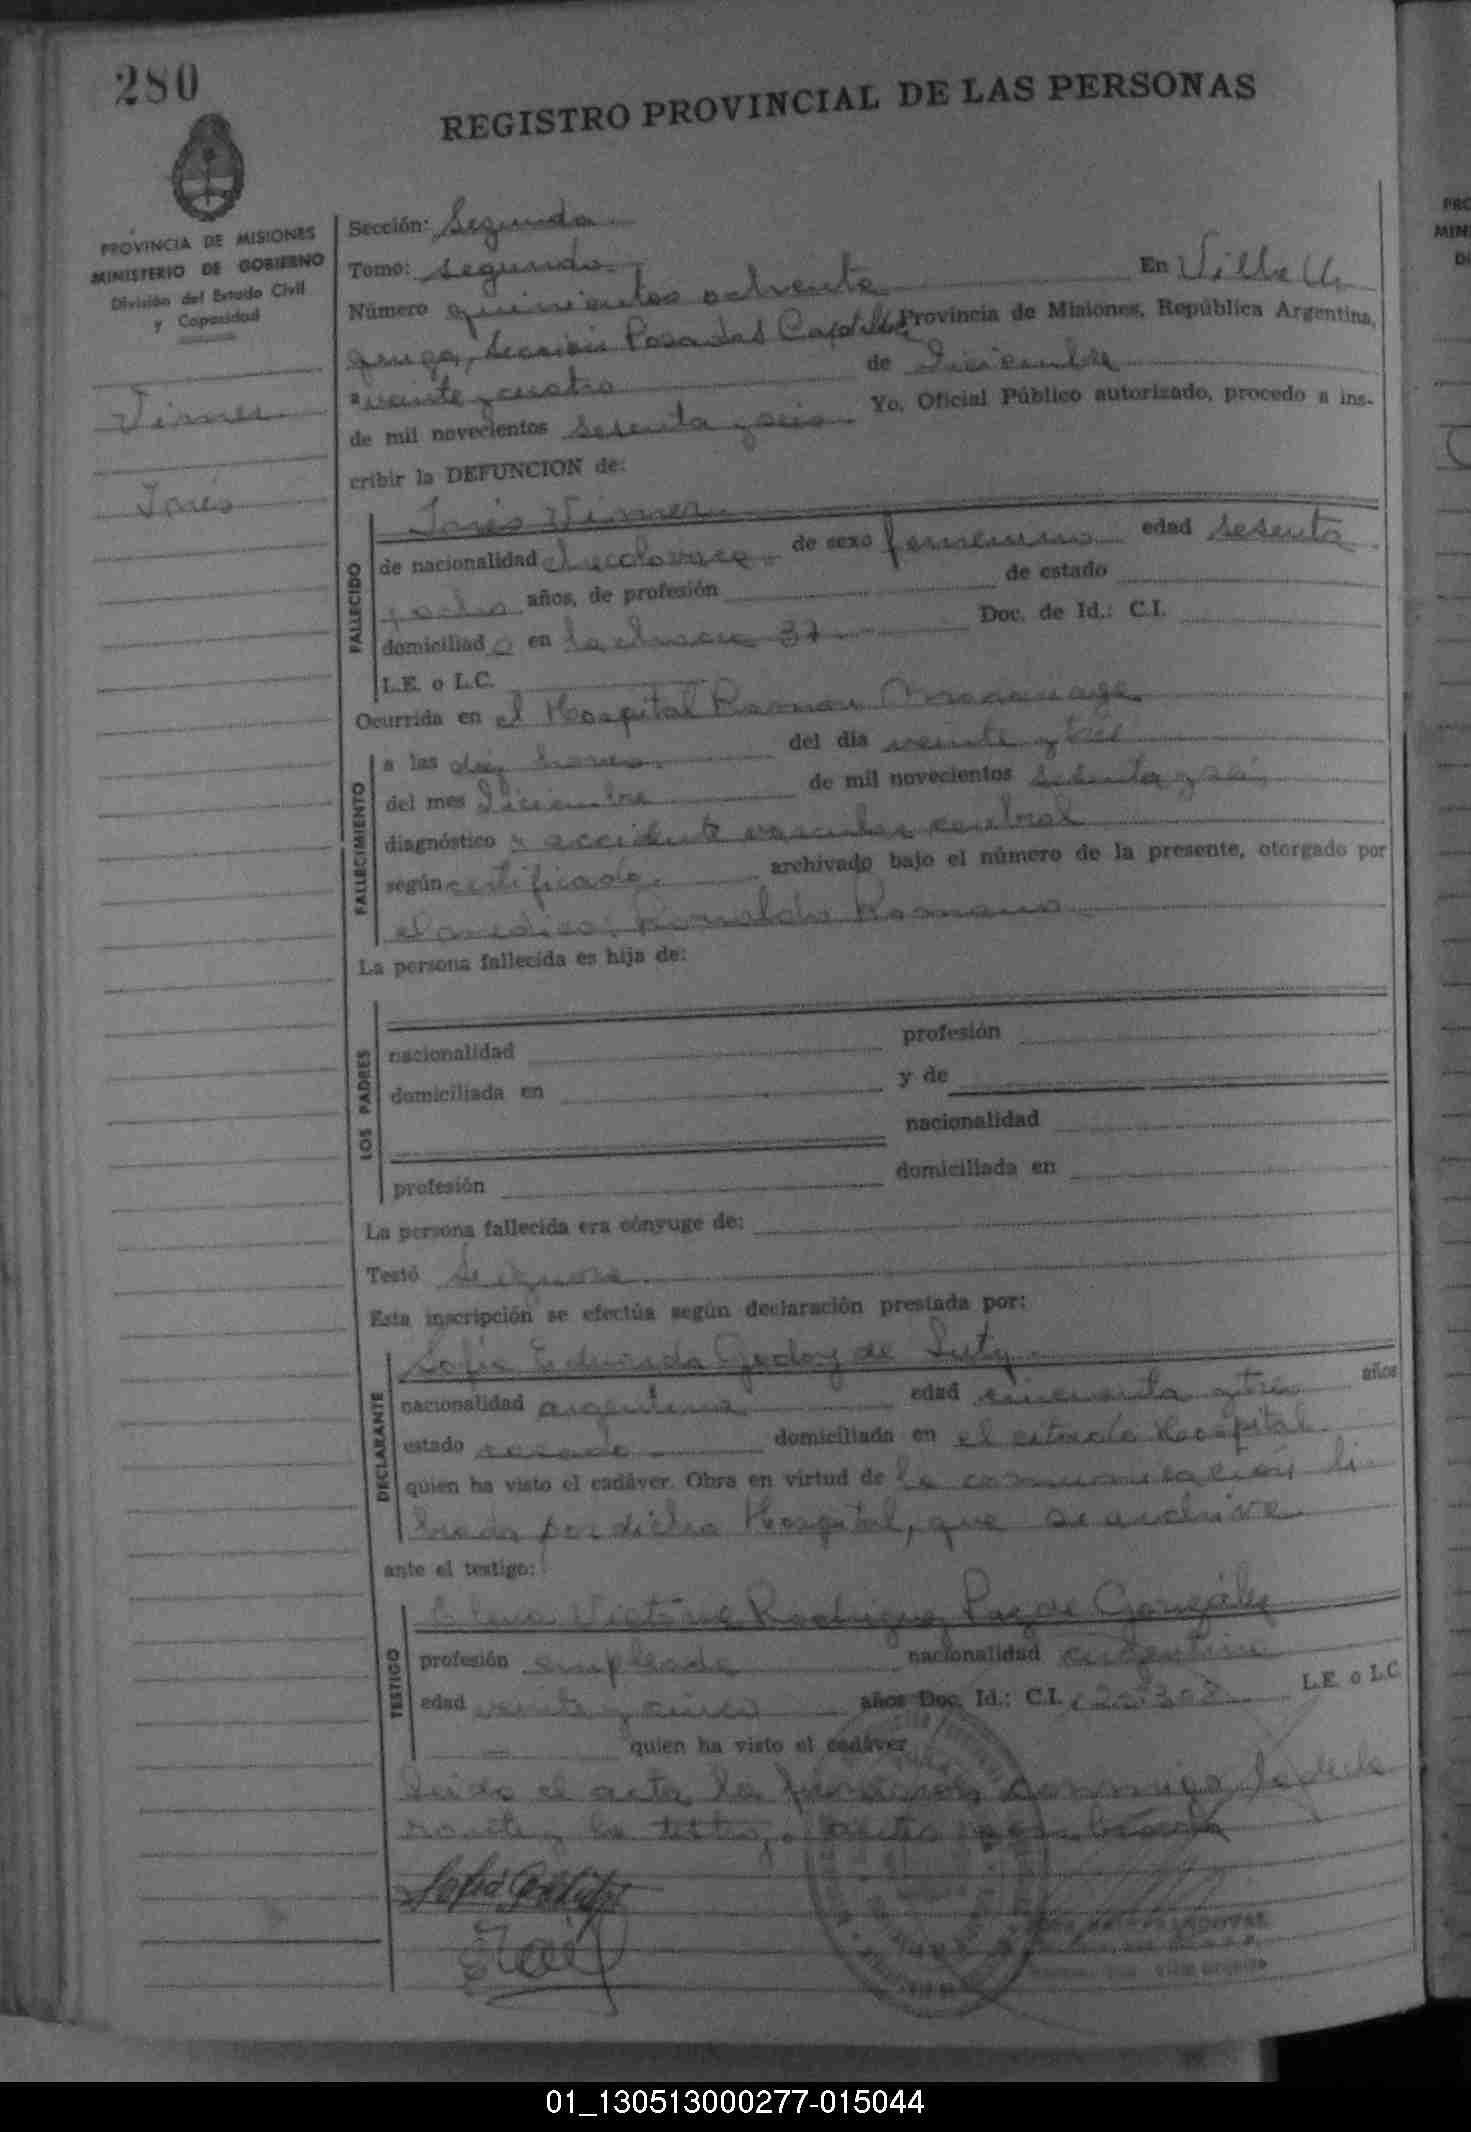 280
REGISTRO PROVINCIAL DE LAS PERSONAS
PROVINCIA DE MISIONES
MINISTERIO DE GOBIERNO
División del Estado Civil
y Capacidad
Vimer
Inés
Sección: Segunda
Tomo: segundo
Número quinientos ochenta En Villa U
rquiza, Sección Posadas Capital Provincia de Misiones, República Argentina,
a veinte y cuatro de Diciembre
de mil novecientos sesenta y seis Yo, Oficial Público autorizado, procedo a ins-
cribir la DEFUNCION de:
Inés Vimer
FALLECIDO
de nacionalidad checolovaca de sexo femenino edad sesenta
y ocho años, de profesión de estado
domiciliad a en la chacra 37 Doc. de Id.: C.I.
L.E. o L.C.
Ocurrida en el Hospital Ramón Madariaga
FALLECIMIENTO
a las diez horas del día veinte y tres
del mes Diciembre de mil novecientos sesenta y seis
diagnóstico accidente vascular cerebral
según certificado archivado bajo el número de la presente, otorgado por
el médico: Romano
La persona fallecida es hija de:
LOS PADRES
nacionalidad profesión
domiciliada en y de
nacionalidad
profesión domiciliada en
La persona fallecida era cónyuge de:
Testó se ignora
Esta inscripción se efectúa según declaración prestada por:
DECLARANTE
Sofía Eduarda Godoy de
nacionalidad argentina edad cincuenta y tres años
estado casada domiciliada en el citado Hospital
quien ha visto el cadáver. Obra en virtud de la comunicación li-
brada por dicho Hospital, que se archiva
ante el testigo:
TESTIGO
Elena Victoria Rodriguez Paz de González
profesión empleada nacionalidad argentina
edad veinte y cinco años Doc. Id.: C.I. L.E. o L.C.
quien ha visto el cadáver
Leída el acta la firmaron conmigo la decla
rante y la testigo
01_130513000277-015044